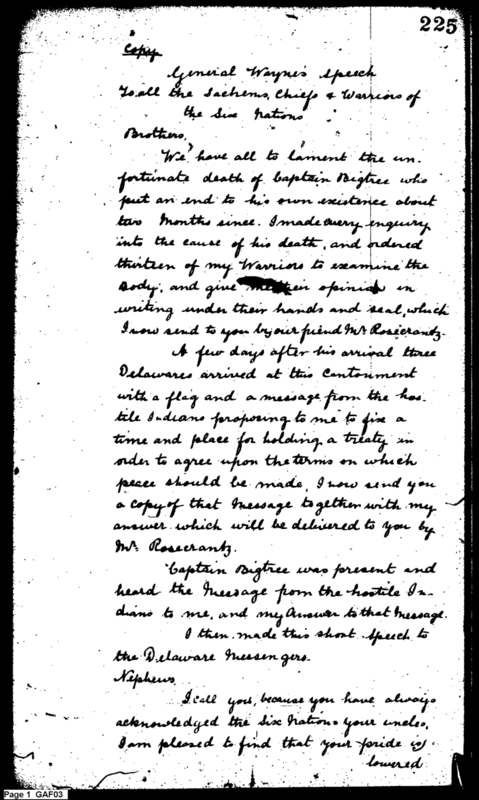 225
Copy
General Wayne's Speech
To all the Sachems, Chiefs & Warriors of
the Six Nations
Brothers,
We have all to lament the un-
fortunate death of Captain Bigtree who
put an end to his own existence about
two Months since. I made every enquiry
into the cause of his death, and ordered
thirteen of my Warriors to examine the
Body, and give me their opinion in
writing under their hands and seal, which
I now send to you by our friend Mr. Rosecrantz.
A few days after his arrival three
Delawares arrived at this Cantonment
with a flag and a message from the hos-
tile Indians proposing to me to fix a
time and place for holding a treaty in
order to agree upon the terms on which
peace should be made, I now send you
a copy of that Message together with my
answer which will be delivered to you by
Mr. Rosecrantz.
Captain Bigtree was present and
heard the Message from the hostile In-
dians to me, and my Answer to that Message.
I then made this short Speech to
the Delaware Messengers.
Nephews,
I call you, because you have always
acknowledged the Six Nations your uncles,
I am pleased to find that your pride is
lowered
Page 1 GAF03